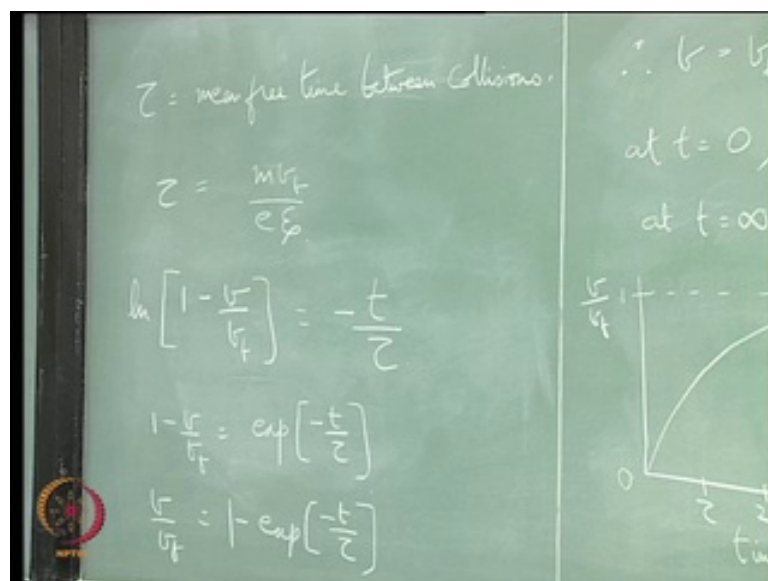 τ = mean free time between Collisions.
τ = mv_f / eξ
ln [1 - v/v_f] = - t/τ
1 - v/v_f = exp[-t/τ]
v/v_f = 1 - exp[-t/τ]
∴ v = v_f
at t = 0,
at t = ∞
v/v_f 1
0 τ 2
tim
NPTEL